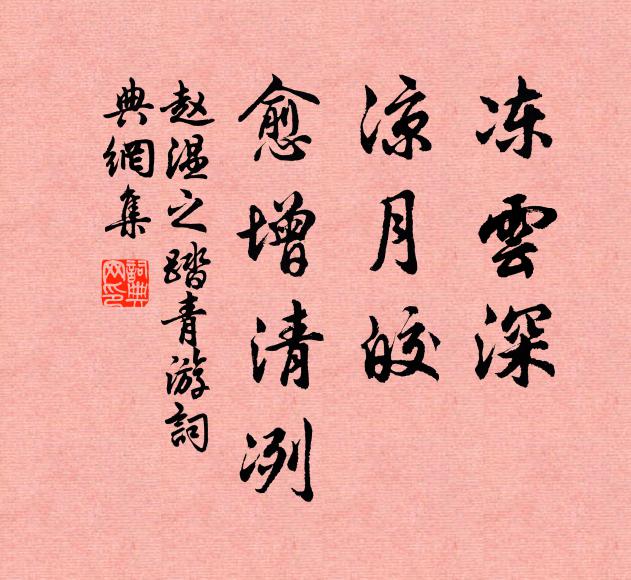 冻雲深
凉月皎
愈增清冽
赵温之踏青游詞
典網集
詞典网印